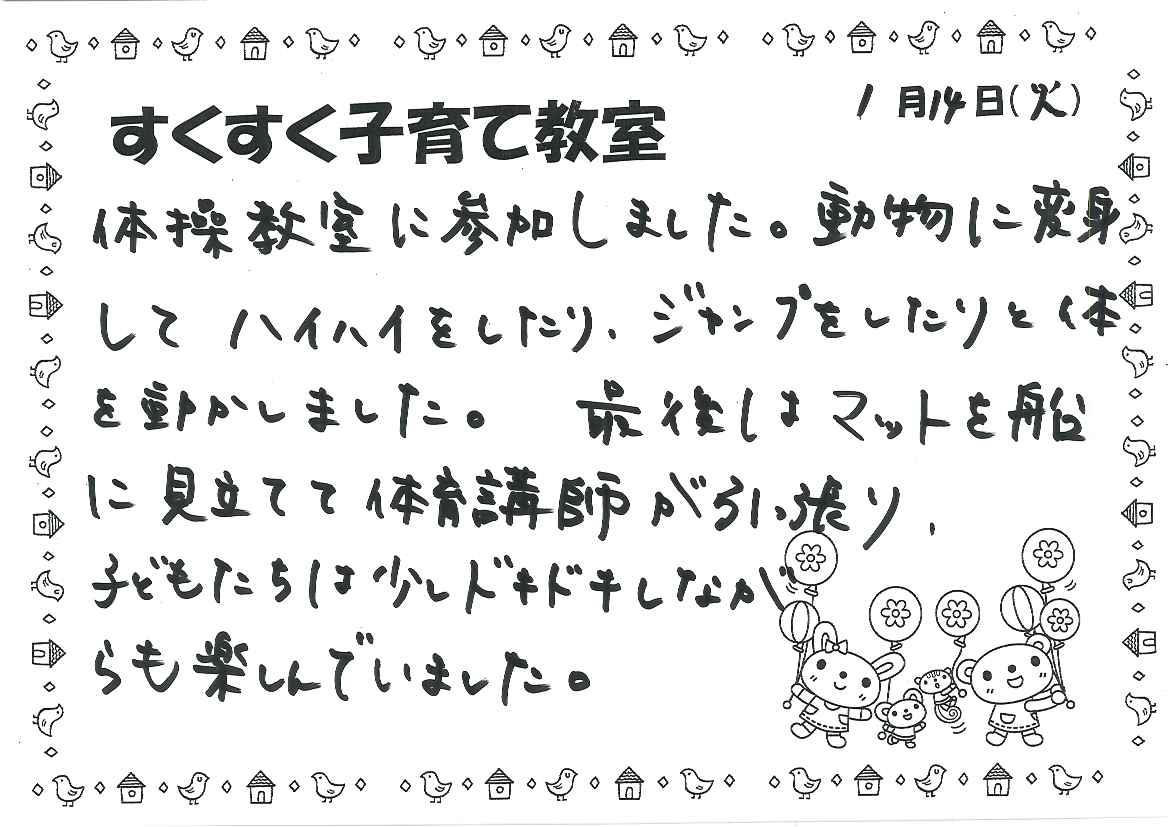 1月14日(火)
すくすく子育て教室
体操教室に参加しました。動物に変身
してハイハイをしたり、ジャンプをしたりと体
を動かしました。 最後はマットを船
に見立てて体育講師が引っ張り、
子どもたちは少しドキドキしなが
らも楽しんでいました。